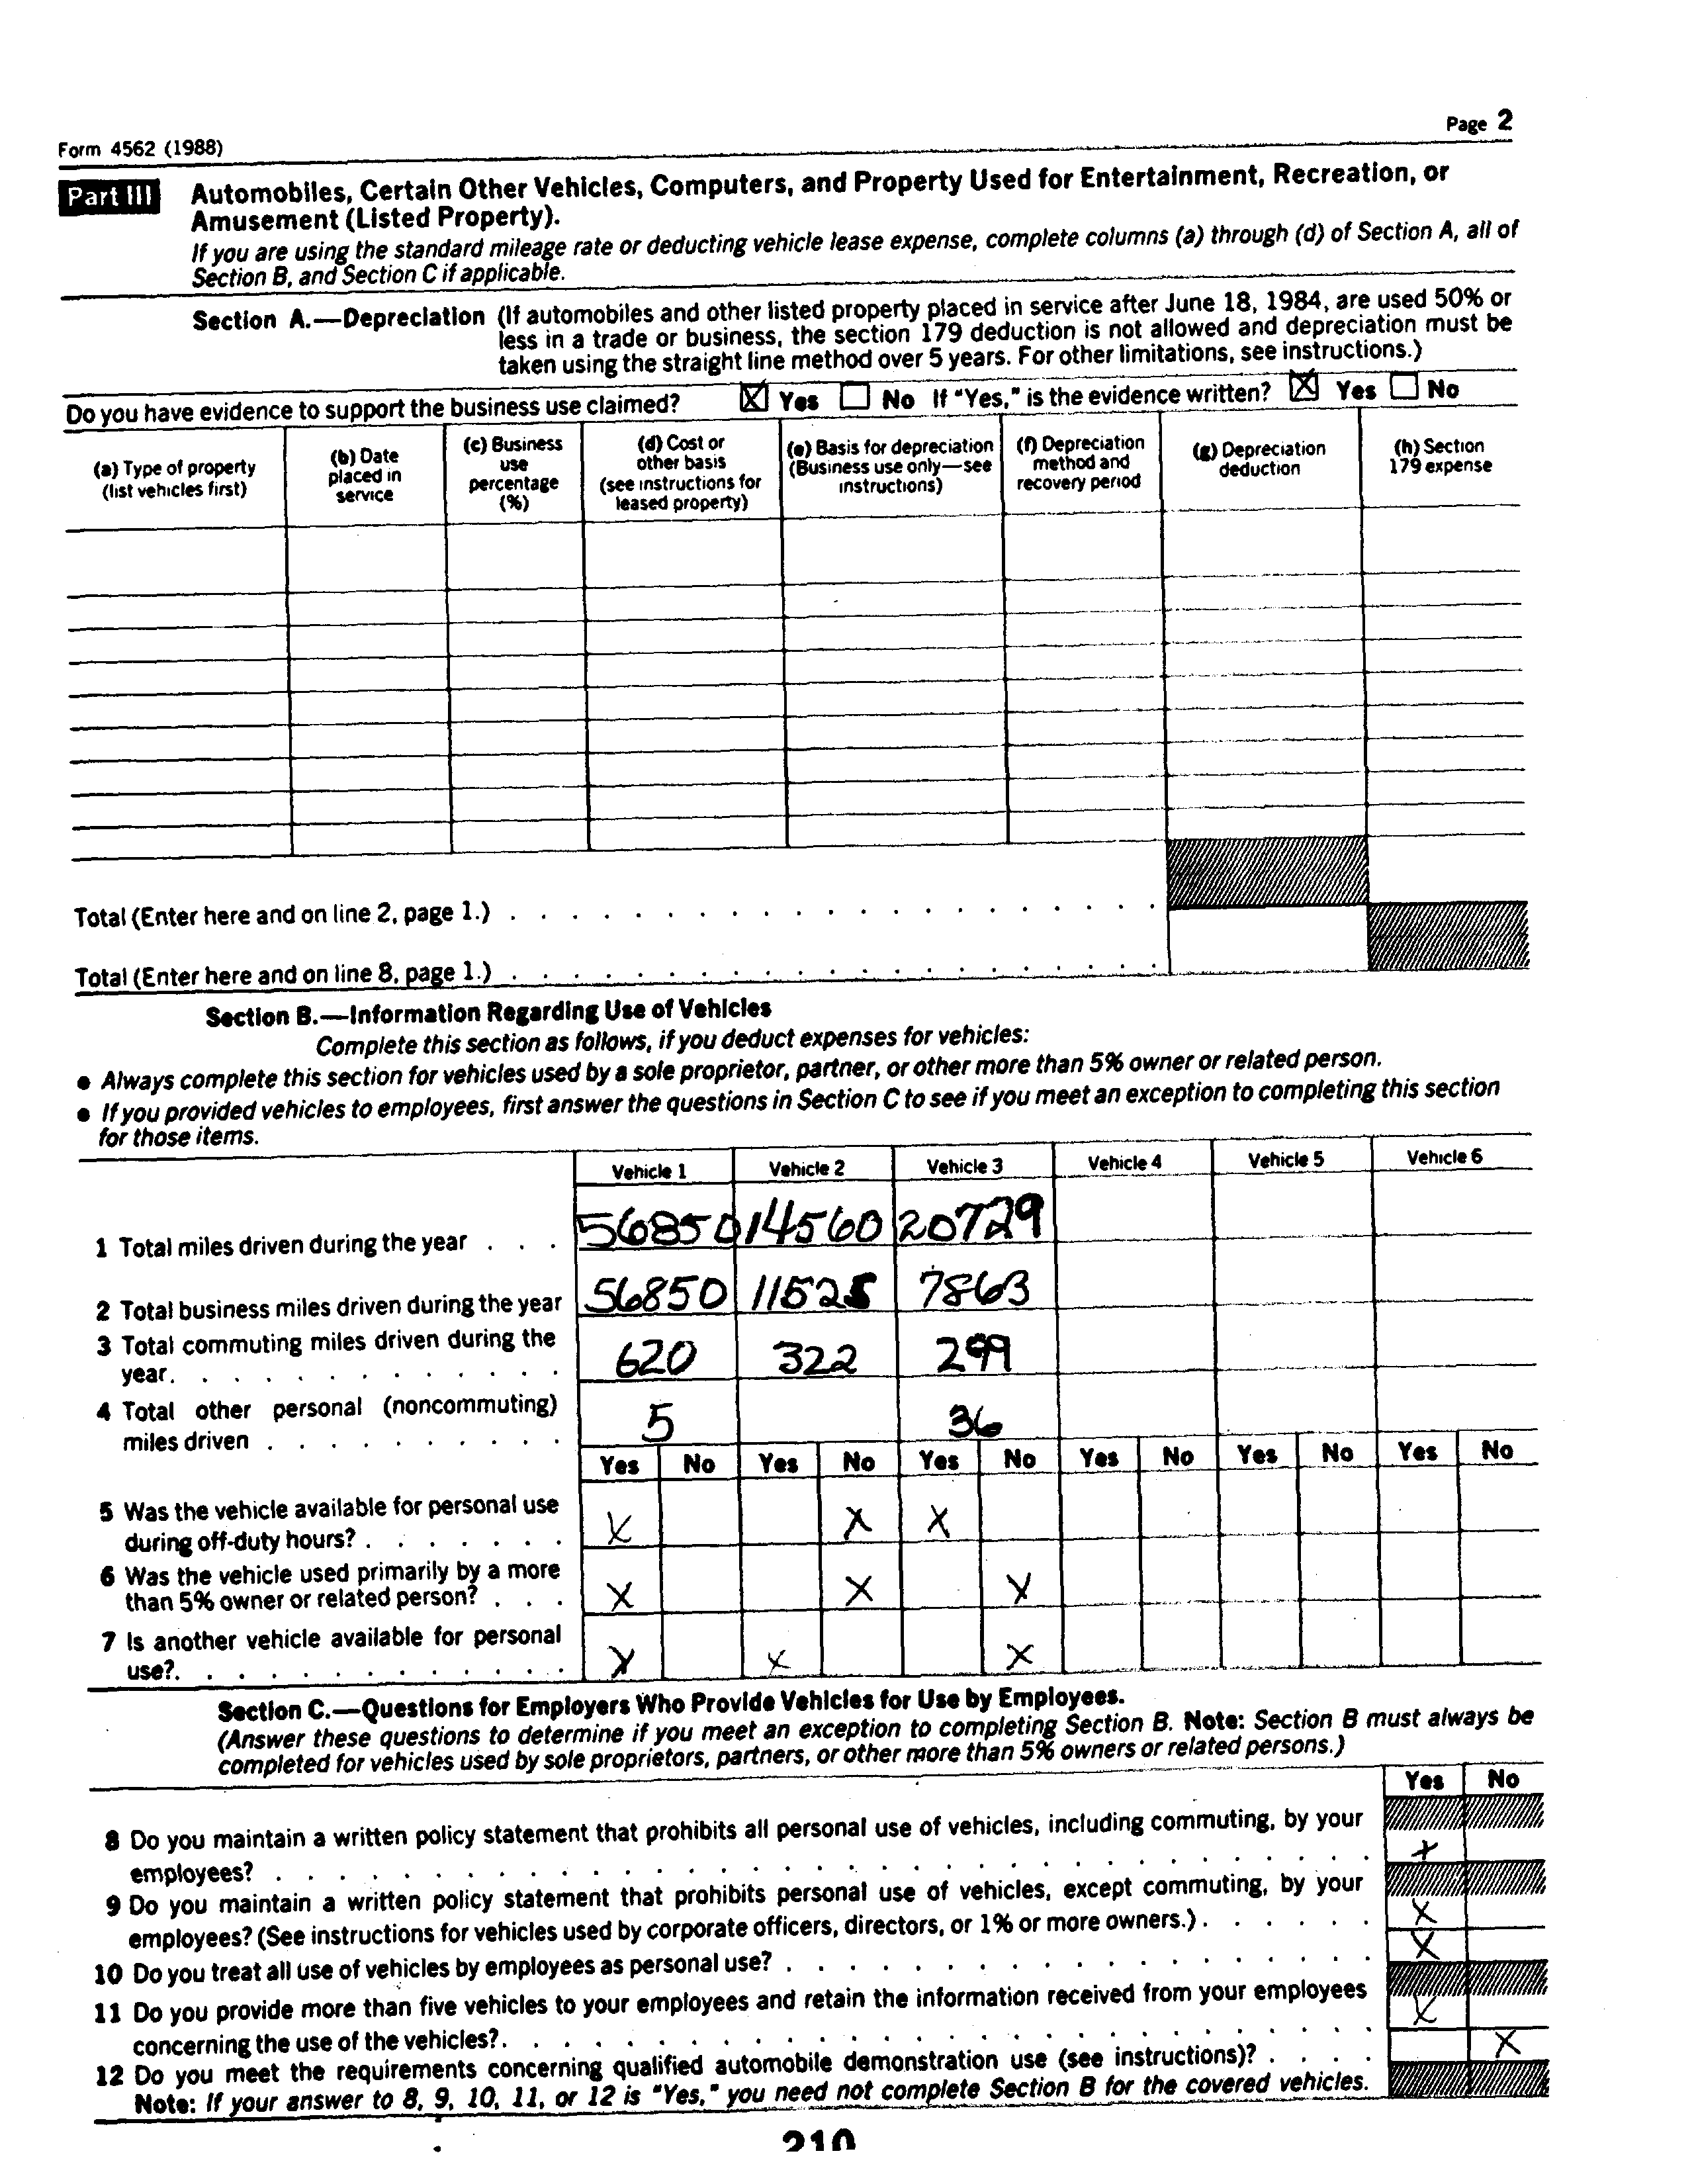 Form 4562 (1988)
Page 2
Part III
Automobiles, Certain Other Vehicles, Computers, and Property Used for Entertainment, Recreation, or
Amusement (Listed Property).
If you are using the standard mileage rate or deducting vehicle lease expense, complete columns (a) through (d) of Section A, all of
Section B, and Section C if applicable.
Section A.—Depreciation (If automobiles and other listed property placed in service after June 18, 1984, are used 50% or
less in a trade or business, the section 179 deduction is not allowed and depreciation must be
taken using the straight line method over 5 years. For other limitations, see instructions.)
Do you have evidence to support the business use claimed? X Yes No If "Yes," is the evidence written? X Yes No
(a) Type of property
(list vehicles first)
(b) Date
placed in
service
(c) Business
use
percentage
(%)
(d) Cost or
other basis
(see instructions for
leased property)
(e) Basis for depreciation
(Business use only—see
instructions)
(f) Depreciation
method and
recovery period
(g) Depreciation
deduction
(h) Section
179 expense
Total (Enter here and on line 2, page 1.)
Total (Enter here and on line 8, page 1.)
Section B.—Information Regarding Use of Vehicles
Complete this section as follows, if you deduct expenses for vehicles:
● Always complete this section for vehicles used by a sole proprietor, partner, or other more than 5% owner or related person.
● If you provided vehicles to employees, first answer the questions in Section C to see if you meet an exception to completing this section
for those items.
Vehicle 1 Vehicle 2 Vehicle 3 Vehicle 4 Vehicle 5 Vehicle 6
1 Total miles driven during the year . . . 56850 14560 20729
2 Total business miles driven during the year 56850 11525 7863
3 Total commuting miles driven during the
year. . . . . . . . . . . . . 620 322 299
4 Total other personal (noncommuting)
miles driven . . . . . . . . . . 5 36
Yes No Yes No Yes No Yes No Yes No Yes No
5 Was the vehicle available for personal use
during off-duty hours? . . . . . . . X X X
6 Was the vehicle used primarily by a more
than 5% owner or related person? . . . X X X
7 Is another vehicle available for personal
use?. . . . . . . . . . . . . X X X
Section C.—Questions for Employers Who Provide Vehicles for Use by Employees.
(Answer these questions to determine if you meet an exception to completing Section B. Note: Section B must always be
completed for vehicles used by sole proprietors, partners, or other more than 5% owners or related persons.)
Yes No
8 Do you maintain a written policy statement that prohibits all personal use of vehicles, including commuting, by your
employees? X
9 Do you maintain a written policy statement that prohibits personal use of vehicles, except commuting, by your
employees? (See instructions for vehicles used by corporate officers, directors, or 1% or more owners.) . . . . . . X
10 Do you treat all use of vehicles by employees as personal use? X
11 Do you provide more than five vehicles to your employees and retain the information received from your employees
concerning the use of the vehicles?. X
12 Do you meet the requirements concerning qualified automobile demonstration use (see instructions)? . . . . X
Note: If your answer to 8, 9, 10, 11, or 12 is "Yes," you need not complete Section B for the covered vehicles.
210